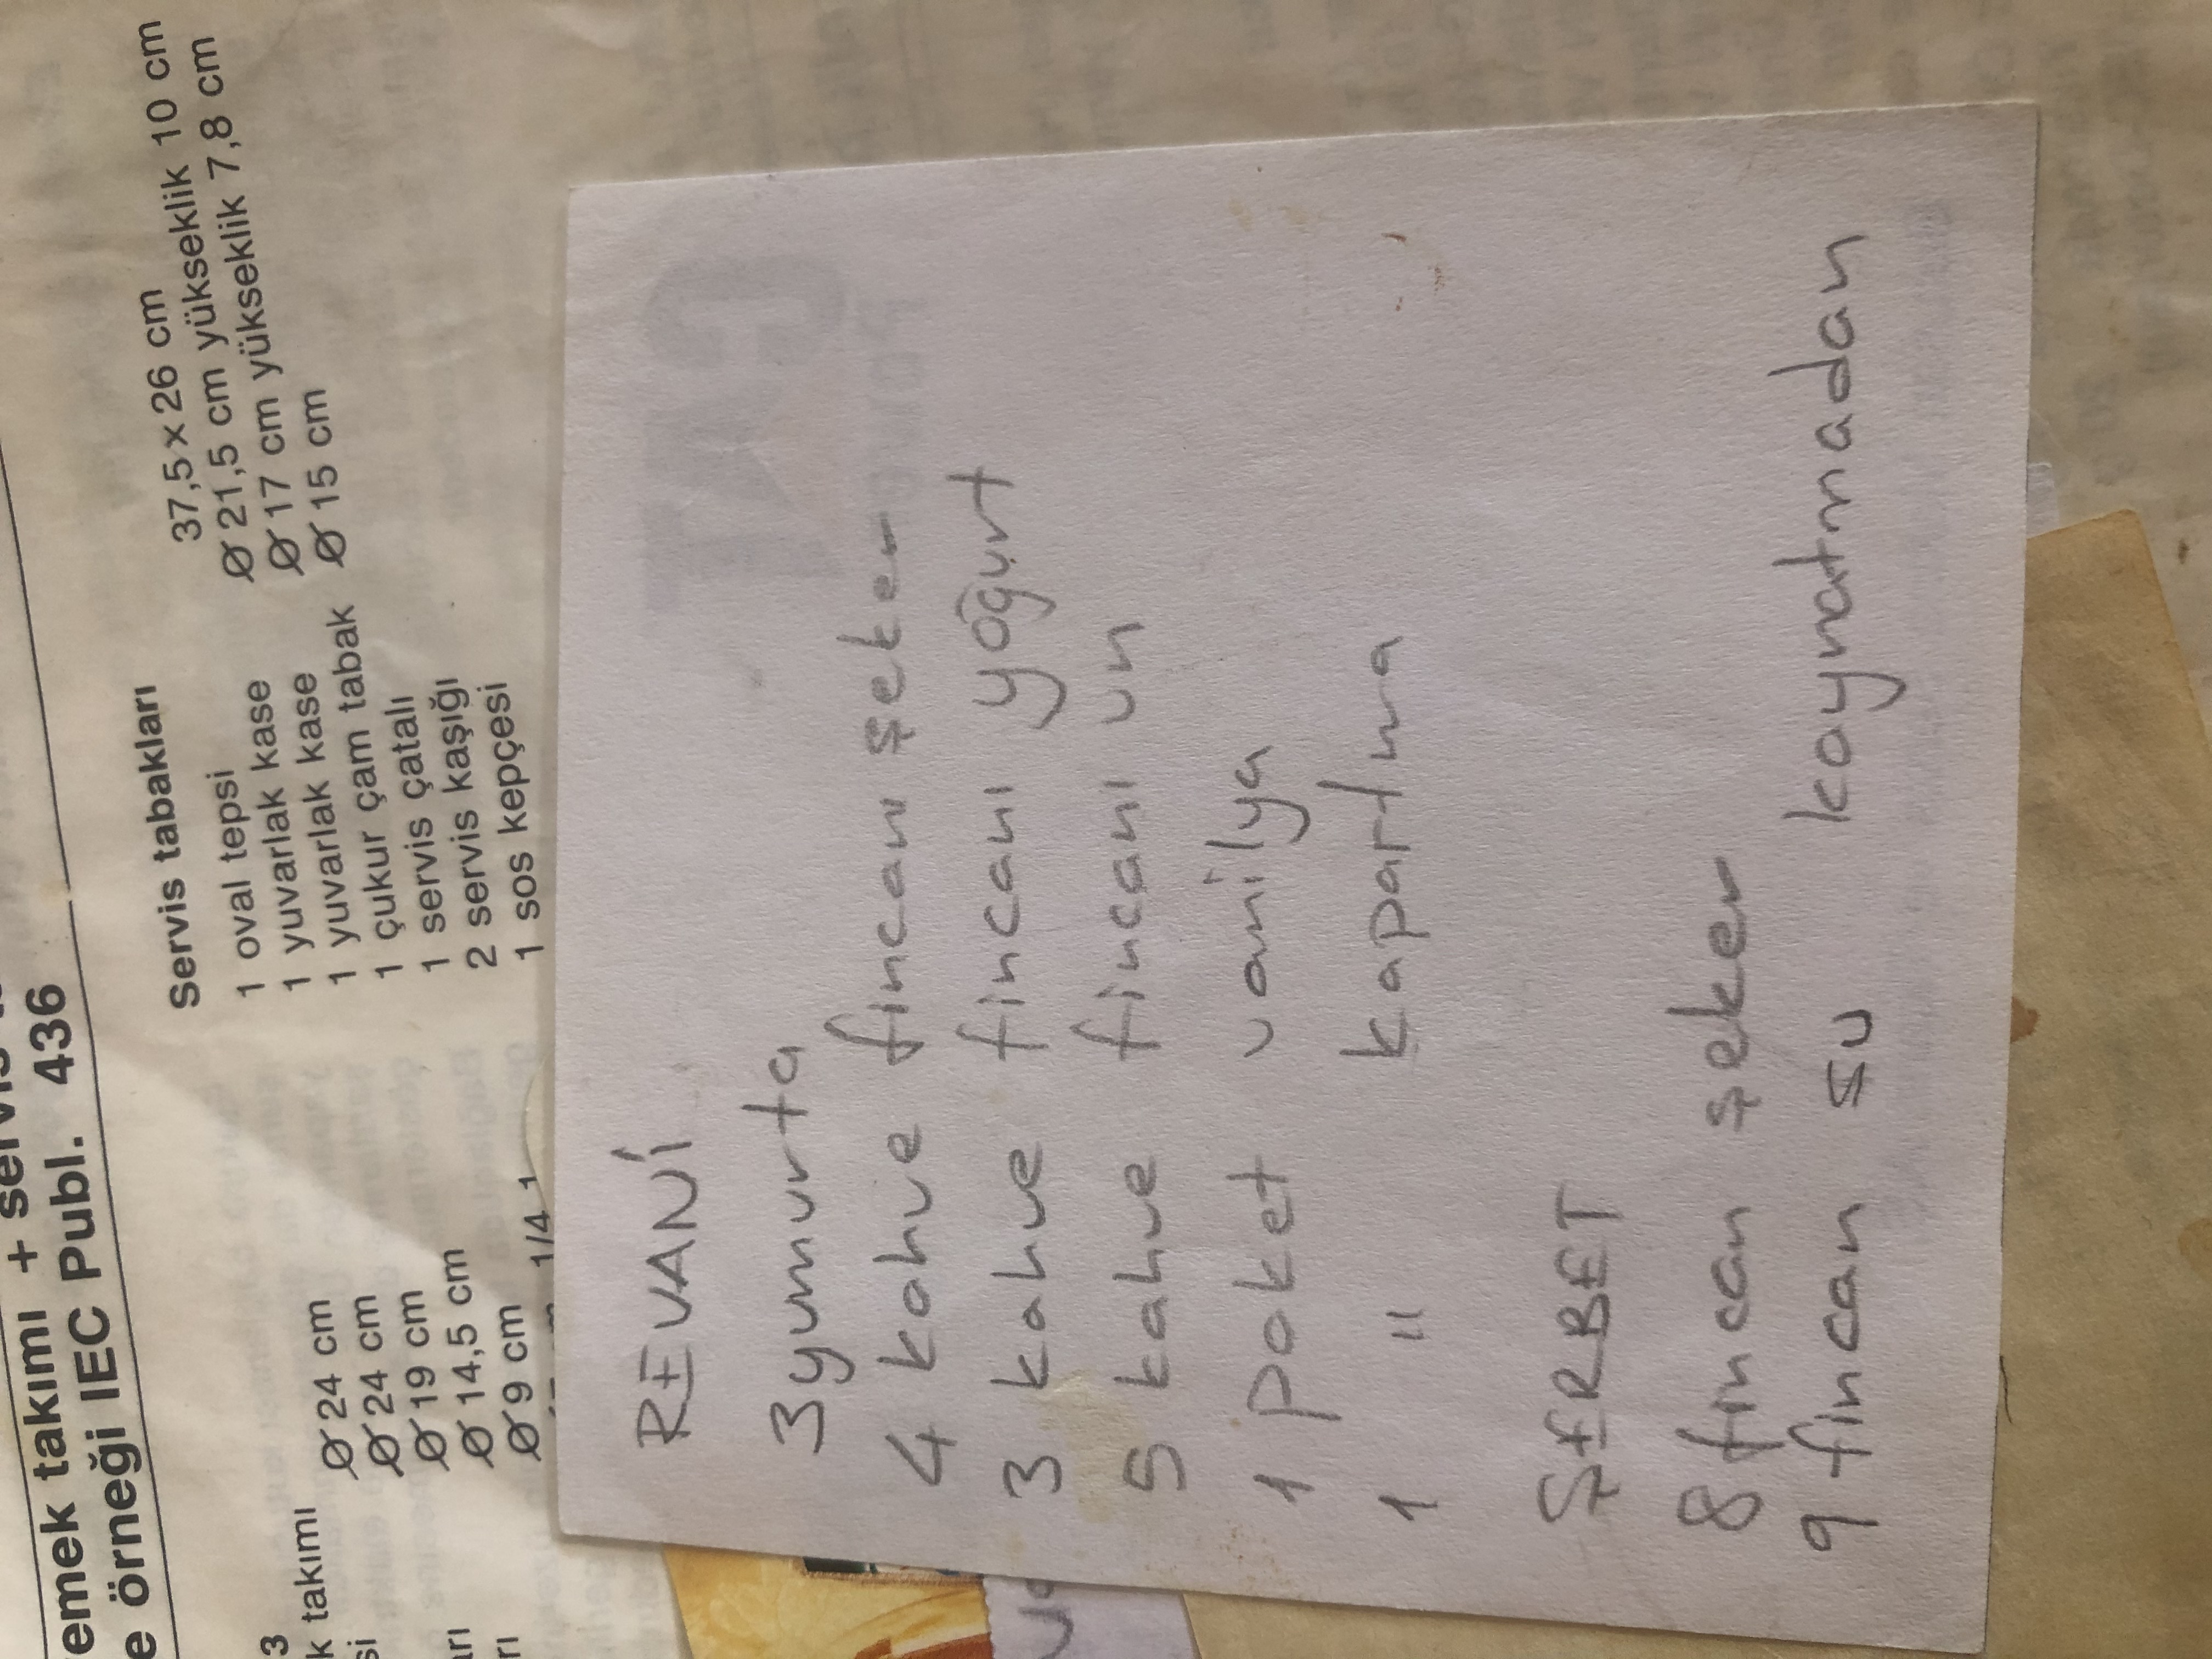 emek takımı + servis
e örneği IEC Publ. 436
3
k takımı
si
arı
rı
Ø 24 cm
Ø 24 cm
Ø 19 cm
Ø 14,5 cm
Ø 9 cm
1/4 1
Servis tabakları
1 oval tepsi 37,5 x 26 cm
1 yuvarlak kase Ø 21,5 cm yükseklik 10 cm
1 yuvarlak kase Ø 17 cm yükseklik 7,8 cm
1 çukur çam tabak Ø 15 cm
1 servis çatalı
2 servis kaşığı
1 sos kepçesi
REVANİ
3 yumurta
4 kahve fincanı şeker
3 kahve fincanı yoğurt
5 kahve fincanı un
1 paket vanilya
1 " kapartma
ŞERBET
8 fincan şeker
9 fincan su kaynatmadan